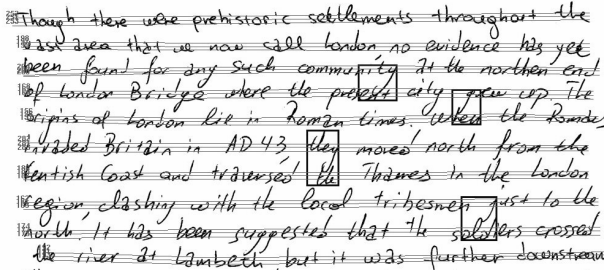 Though there were prehistoric settlements throughout the
vast area that we now call London, no evidence has yet
been found for any such community at the northen end
of London Bridge where the present city grew up. The
origins of London lie in Roman times. When the Romans
invaded Britain in AD 43, they moved north from the
Kentish Coast and traversed the Thames in the London
region clashing with the local tribesmen just to the
north. It has been suggested that the soldiers crossed
the river at Lambeth but it was further downstream